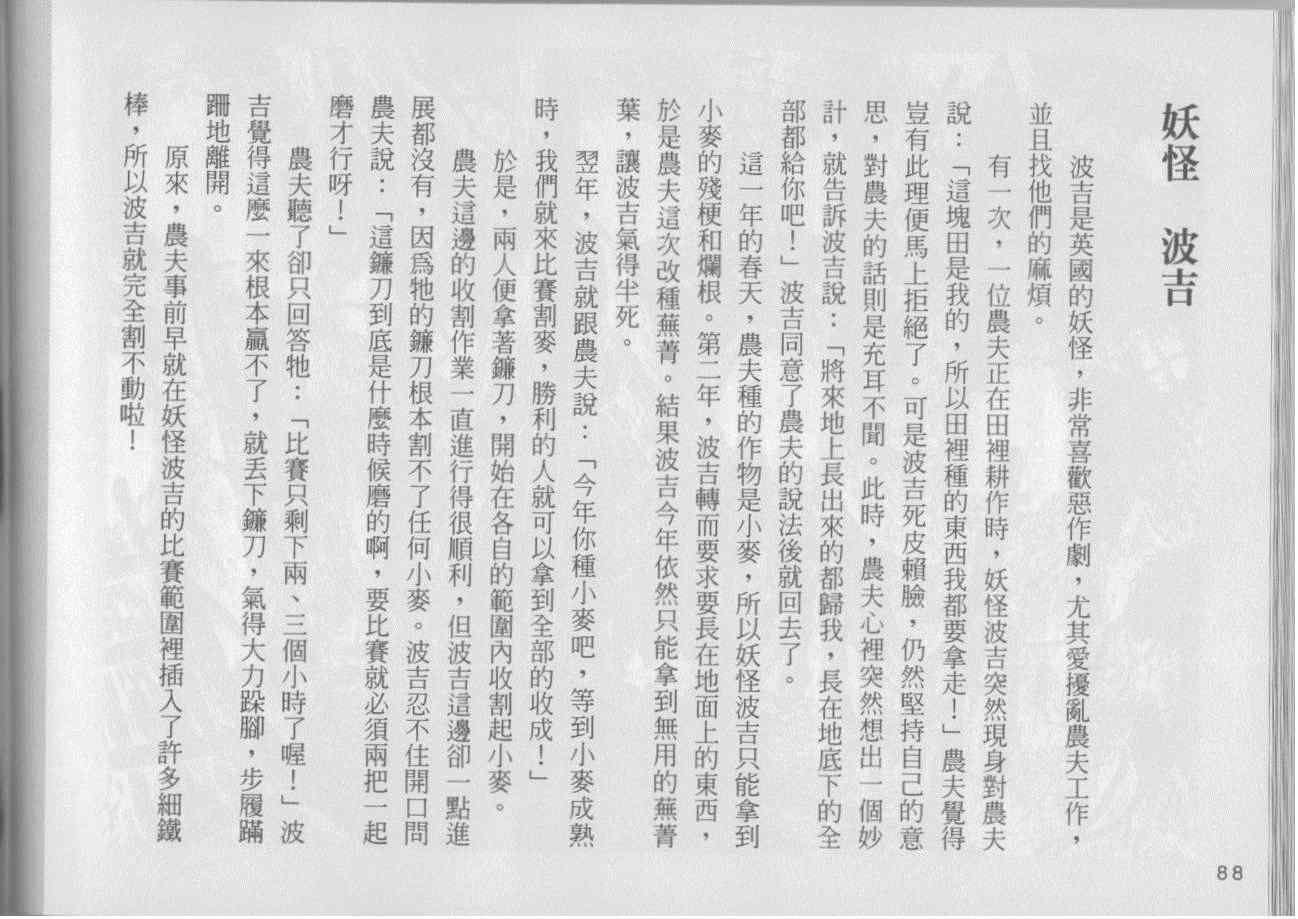 妖怪　波吉
波吉是英國的妖怪，非常喜歡惡作劇，尤其愛擾亂農夫工作，
並且找他們的麻煩。
有一次，一位農夫正在田裡耕作時，妖怪波吉突然現身對農夫
說：「這塊田是我的，所以田裡種的東西我都要拿走！」農夫覺得
豈有此理便馬上拒絕了。可是波吉死皮賴臉，仍然堅持自己的意
思，對農夫的話則是充耳不聞。此時，農夫心裡突然想出一個妙
計，就告訴波吉說：「將來地上長出來的都歸我，長在地底下的全
部都給你吧！」波吉同意了農夫的說法後就回去了。
這一年的春天，農夫種的作物是小麥，所以妖怪波吉只能拿到
小麥的殘梗和爛根。第二年，波吉轉而要求要長在地面上的東西，
於是農夫這次改種蕪菁。結果波吉今年依然只能拿到無用的蕪菁
葉，讓波吉氣得半死。
翌年，波吉就跟農夫說：「今年你種小麥吧，等到小麥成熟
時，我們就來比賽割麥，勝利的人就可以拿到全部的收成！」
於是，兩人便拿著鐮刀，開始在各自的範圍內收割起小麥。
農夫這邊的收割作業一直進行得很順利，但波吉這邊卻一點進
展都沒有，因為牠的鐮刀根本割不了任何小麥。波吉忍不住開口問
農夫說：「這鐮刀到底是什麼時候磨的啊，要比賽就必須兩把一起
磨才行呀！」
農夫聽了卻只回答牠：「比賽只剩下兩、三個小時了喔！」波
吉覺得這麼一來根本贏不了，就丟下鐮刀，氣得大力跺腳，步履蹣
跚地離開。
原來，農夫事前早就在妖怪波吉的比賽範圍裡插入了許多細鐵
棒，所以波吉就完全割不動啦！
88